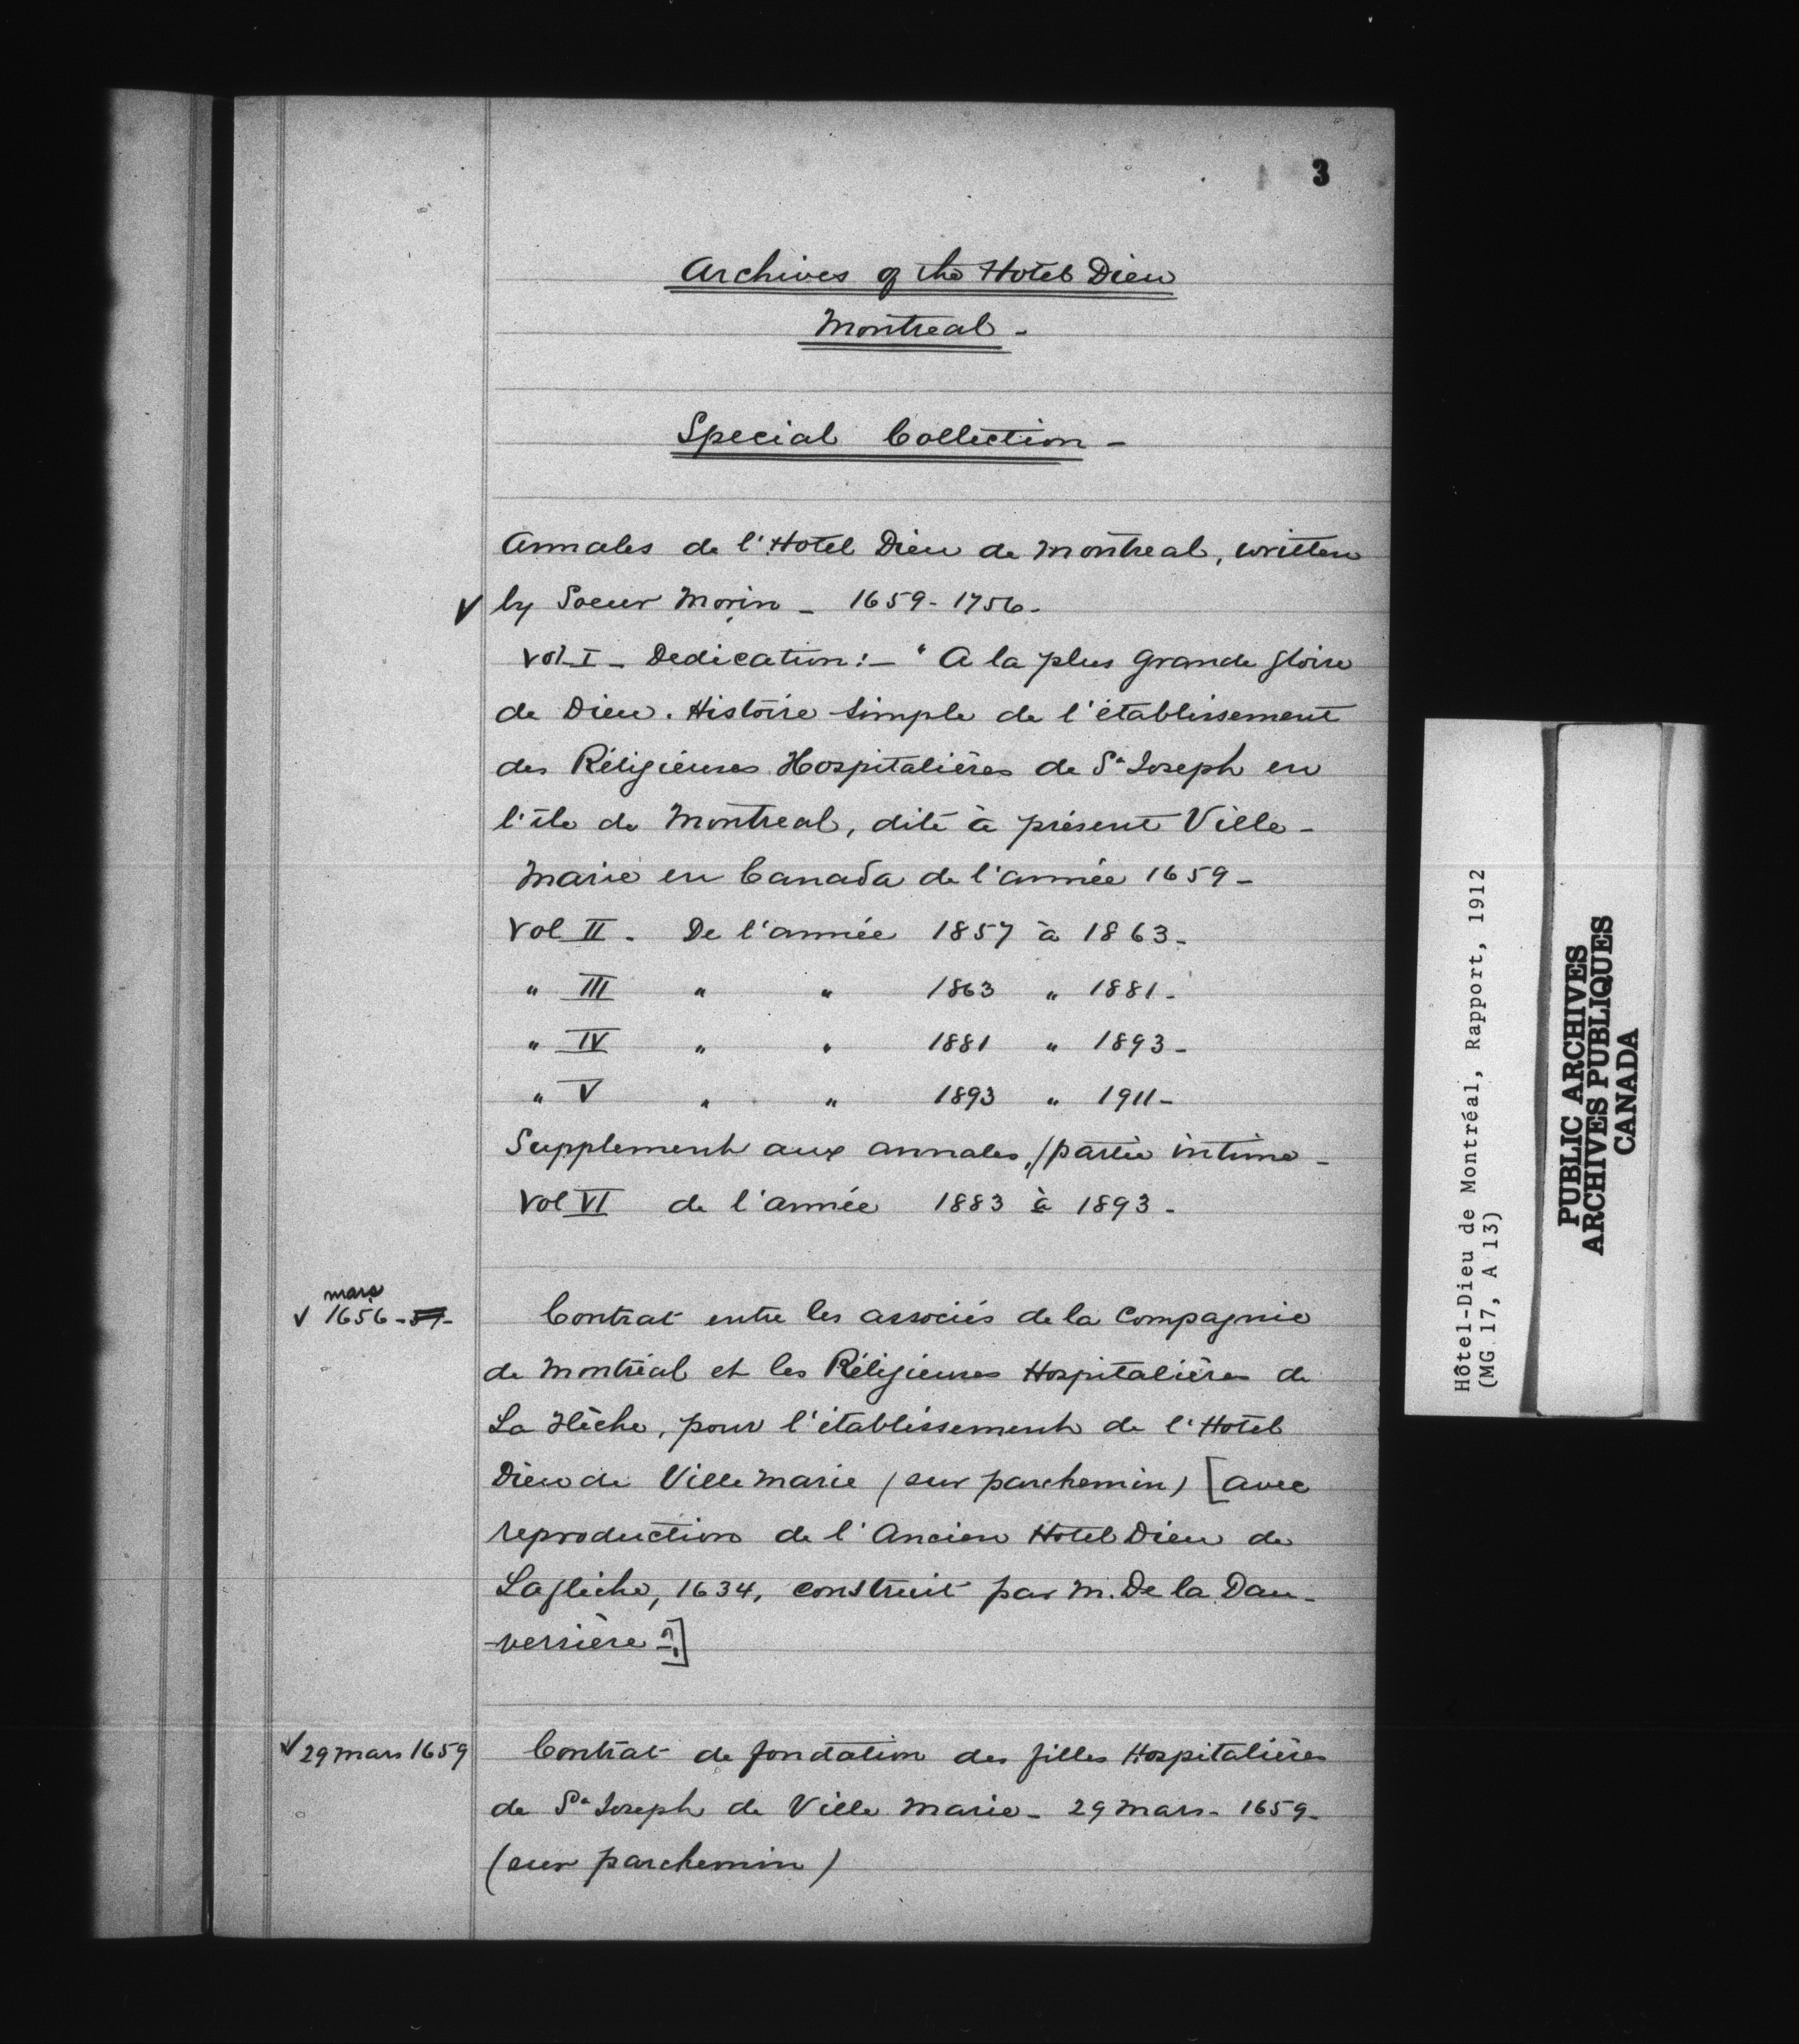 3
Archives of the Hotel Dieu
Montreal -
Special Collection -
Annales de l'Hotel Dieu de Montreal, written
✓ by Soeur Morin - 1659-1756-
Vol I - Dedication:- "A la plus grande gloire
de Dieu. Histoire simple de l'établissement
des Réligieuses Hospitalières de St Joseph en
l'île de Montreal, dité à présent Ville-
Marie en Canada de l'année 1659-
Vol II. De l'année 1857 à 1863-
" III " " 1863 " 1881-
" IV " " 1881 " 1893-
" V " " 1893 " 1911-
Supplement aux annales, /partie intime-
Vol VI de l'année 1883 à 1893-
mars
✓ 1656-57- Contrat entre les associés de la Compagnie
de Montréal et les Réligieuses Hospitalières de
La Flèche, pour l'établissement de l'Hotel
Dieu de Ville Marie (sur parchemin) [avec
reproduction de l'Ancien Hotel Dieu de
Laflèche, 1634, construit par M. De la Dau-
-versière -?]
✓ 29 mars 1659 Contrat de fondation des filles Hospitalières
de St Joseph de Ville Marie- 29 Mars- 1659-
(sur parchemin)
Hôtel-Dieu de Montréal, Rapport, 1912
(MG 17, A 13)
PUBLIC ARCHIVES
ARCHIVES PUBLIQUES
CANADA